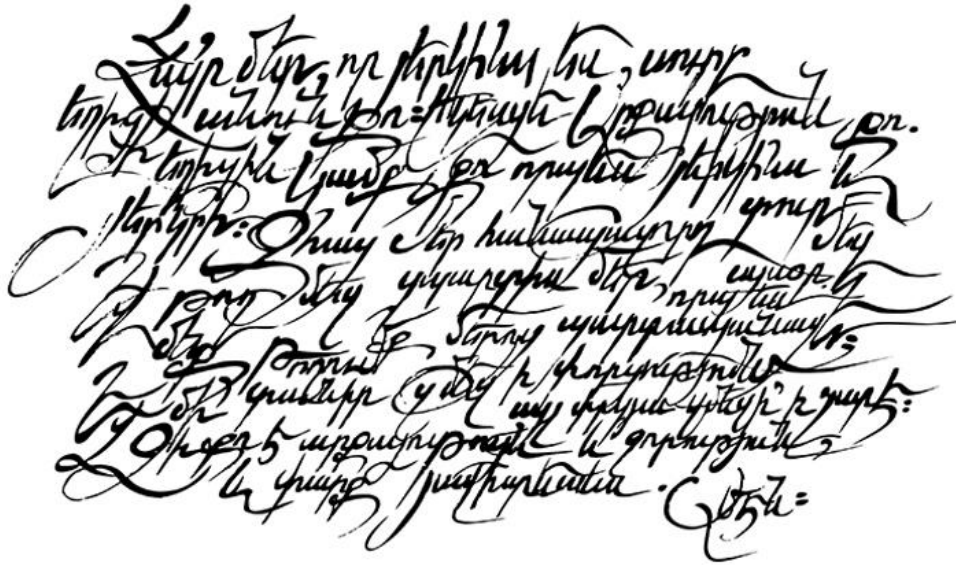 Հայր մեր, որ յերկինս ես, սուրբ
եղիցի անուն քո։ Եկեսցէ արքայութիւն քո.
Եղիցին կամք քո որպէս յերկինս և
յերկրի։ Զհաց մեր հանապազորդ տուր մեզ
այսօր և
Եւ թող մեզ զպարտիս մեր, որպէս
և մեք թողումք մերոց պարտապանաց։
Եւ մի տանիր զմեզ ի փորձութիւն.
այլ փրկեա զմեզ ի չարէ։
Զի քո է արքայութիւն և զօրութիւն
և փառք յաւիտեանս. Ամէն։